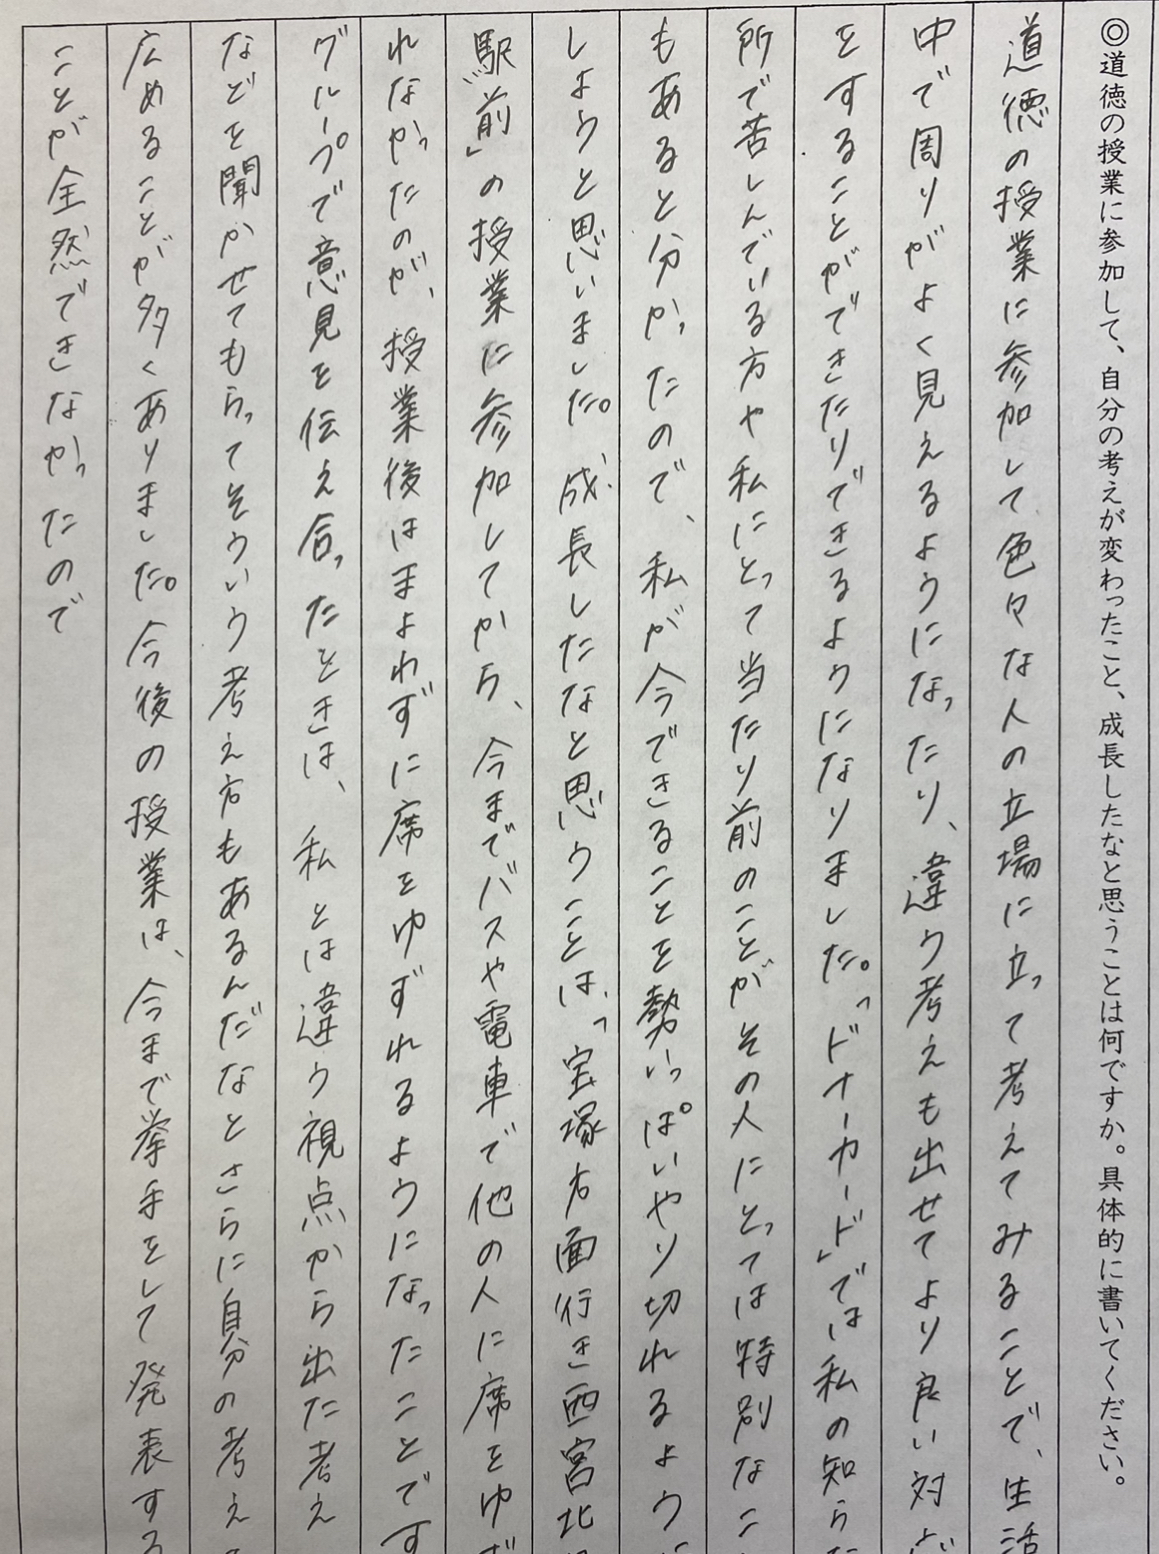 ◎道徳の授業に参加して、自分の考えが変わったこと、成長したなと思うことは何ですか。具体的に書いてください。
道徳の授業に参加して色々な人の立場に立って考えてみることで、生活
中で周りがよく見えるようになったり、違う考えも出せてより良い対
をすることができたりできるようになりました。「ドナーカード」では私の知ら
所で苦しんでいる方や私にとって当たり前のことがその人にとっては特別なこ
もあると分かったので、私が今できることを勢いっぱいやり切れるよう
しようと思いました。成長したなと思うことは、「宝塚方面行き西宮北
駅前」の授業に参加してから、今までバスや電車で他の人に席をゆず
れなかったのが、授業後はまよわずに席をゆずれるようになったことです
グループで意見を伝え合ったときは、私とは違う視点から出た考え
などを聞かせてもらってそういう考え方もあるんだなとさらに自分の考え
広めることが多くありました。今後の授業は、今まで挙手をして発表する
ことが全然できなかったので